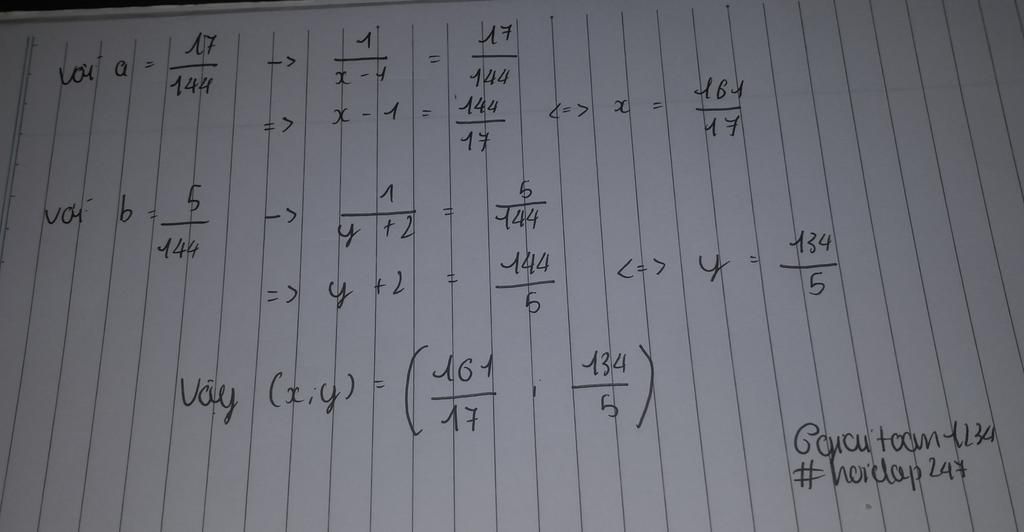 Với a = 17/144 -> 1/(x - 1) = 17/144
=> x - 1 = 144/17 <=> x = 161/17
Với b = 5/144 -> 1/(y + 2) = 5/144
=> y + 2 = 144/5 <=> y = 134/5
Vậy (x;y) = (161/17 ; 134/5)
#hoidap247